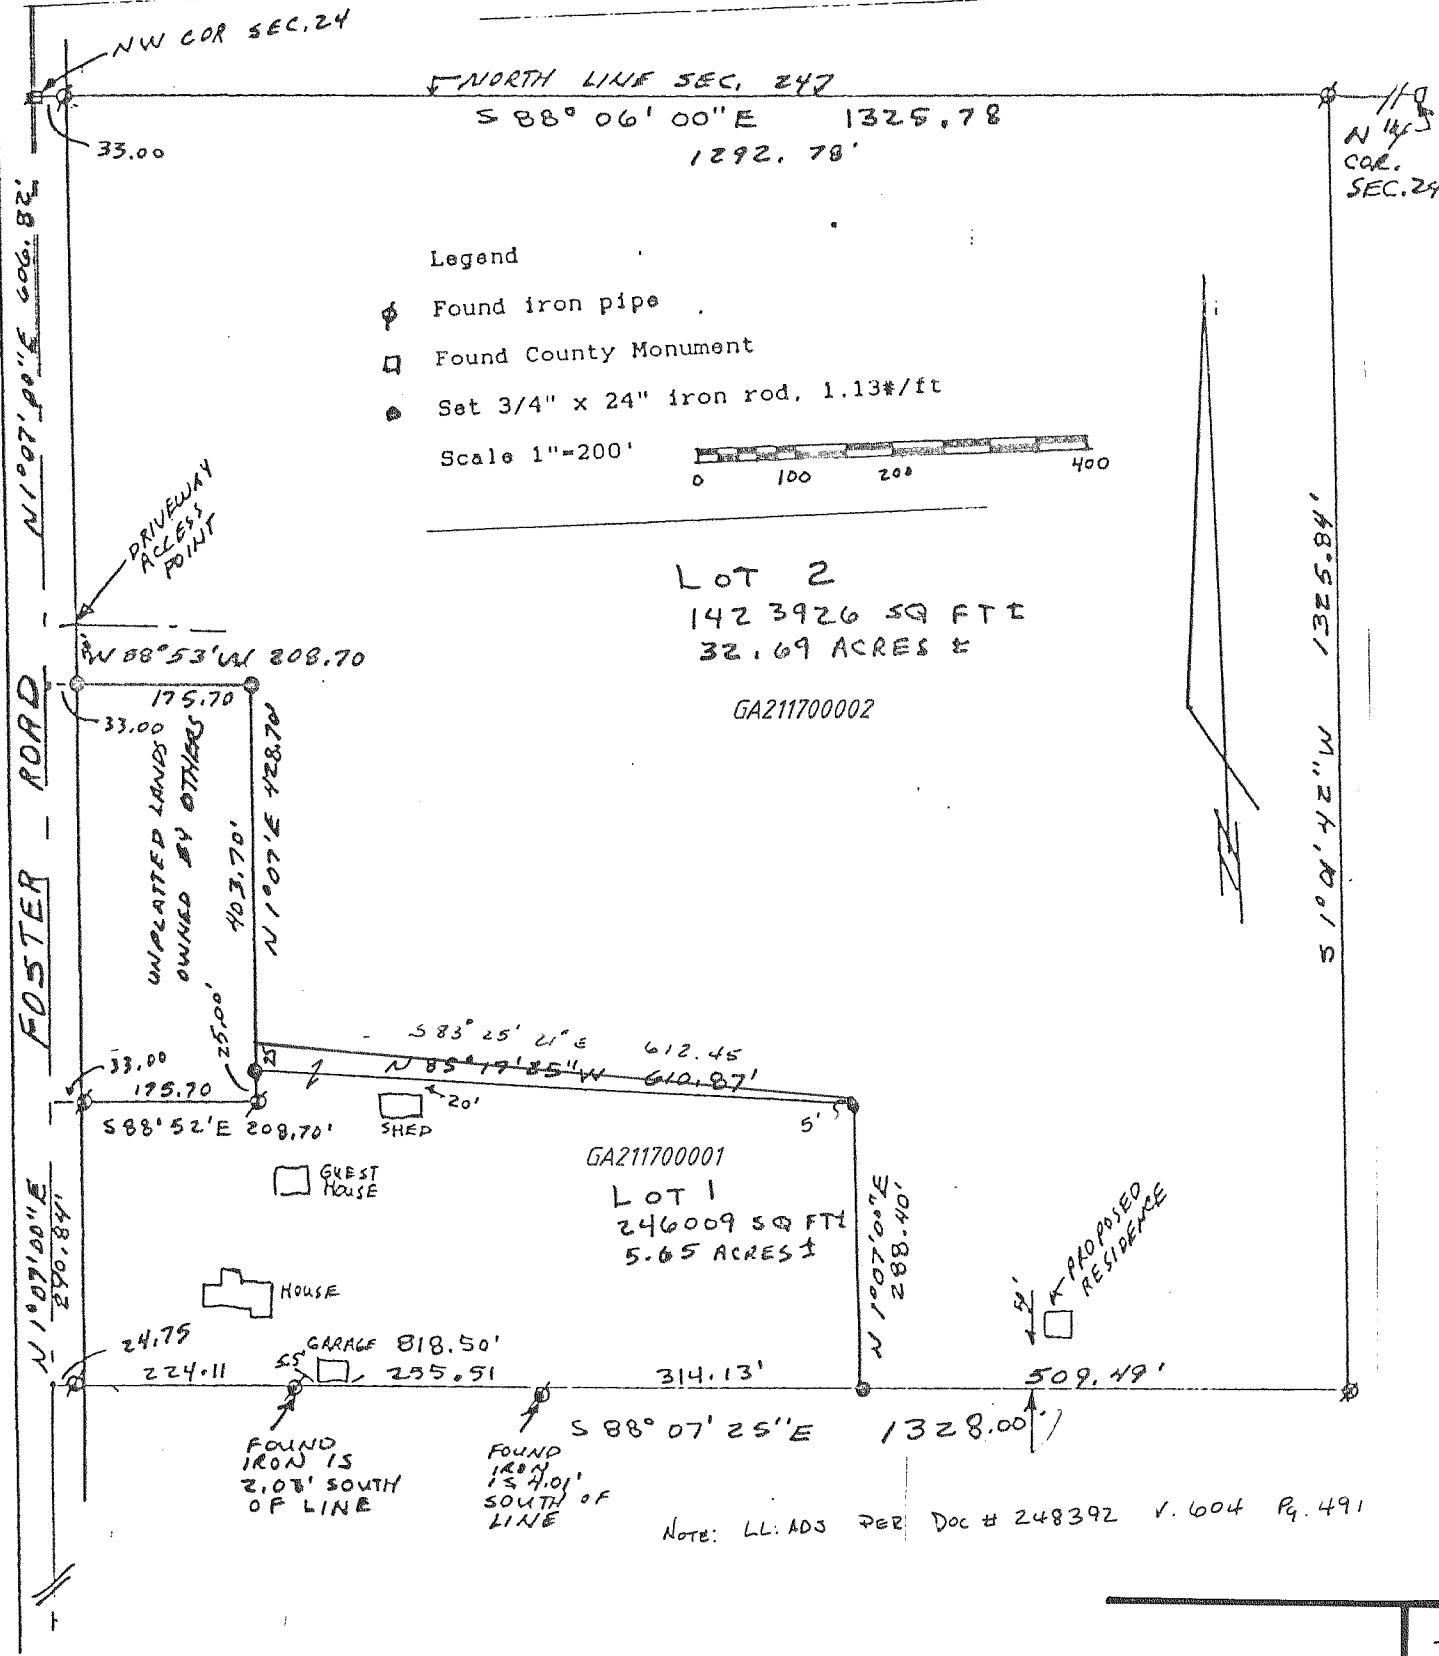 NW COR SEC. 24
NORTH LINE SEC. 24
S 88° 06' 00" E 1325.78
1292.78'
33.00
N 1/4
COR.
SEC. 24
N 1° 07' 00" E 606.82'
Legend
Found iron pipe
Found County Monument
Set 3/4" x 24" iron rod, 1.13#/ft
Scale 1"=200'
0 100 200 400
DRIVEWAY
ACCESS
POINT
LOT 2
142 3926 SQ FT ±
32.69 ACRES ±
GA211700002
S 1° 10' 42" W 1325.84'
N 88° 53' W 208.70
175.70
33.00
UNPLATTED LANDS
OWNED BY OTHERS
403.70'
N 1° 07' E 428.70'
FOSTER ROAD
25.00'
25'
S 83° 25' 21" E 612.45
N 85° 19' 25" W 610.87'
33.00
175.70
S 88° 52' E 208.70'
20'
SHED
5'
GUEST
HOUSE
GA211700001
LOT 1
246009 SQ FT±
5.65 ACRES ±
N 1° 07' 00" E
290.84'
N 1° 07' 00" E
288.40'
PROPOSED
RESIDENCE
HOUSE
24.75
GARAGE 818.50'
224.11
55'
255.51
314.13'
509.49'
S 88° 07' 25" E 1328.00'
FOUND
IRON IS
2.08' SOUTH
OF LINE
FOUND
IRON
IS 4.01'
SOUTH OF
LINE
NOTE: LL: ADJ PER DOC # 248392 V. 604 Pg. 491